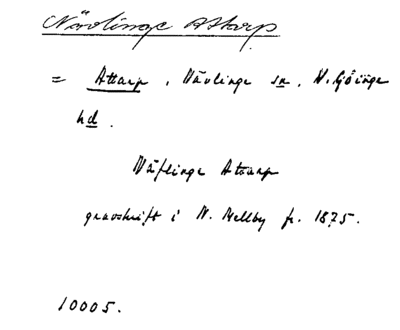 Nävlinge Attarp
= Attarp, Nävlinge sn, V. Göinge
hd.
Näflinge Attarp
gravskrift i N. Mellby fr. 1875.
10005.